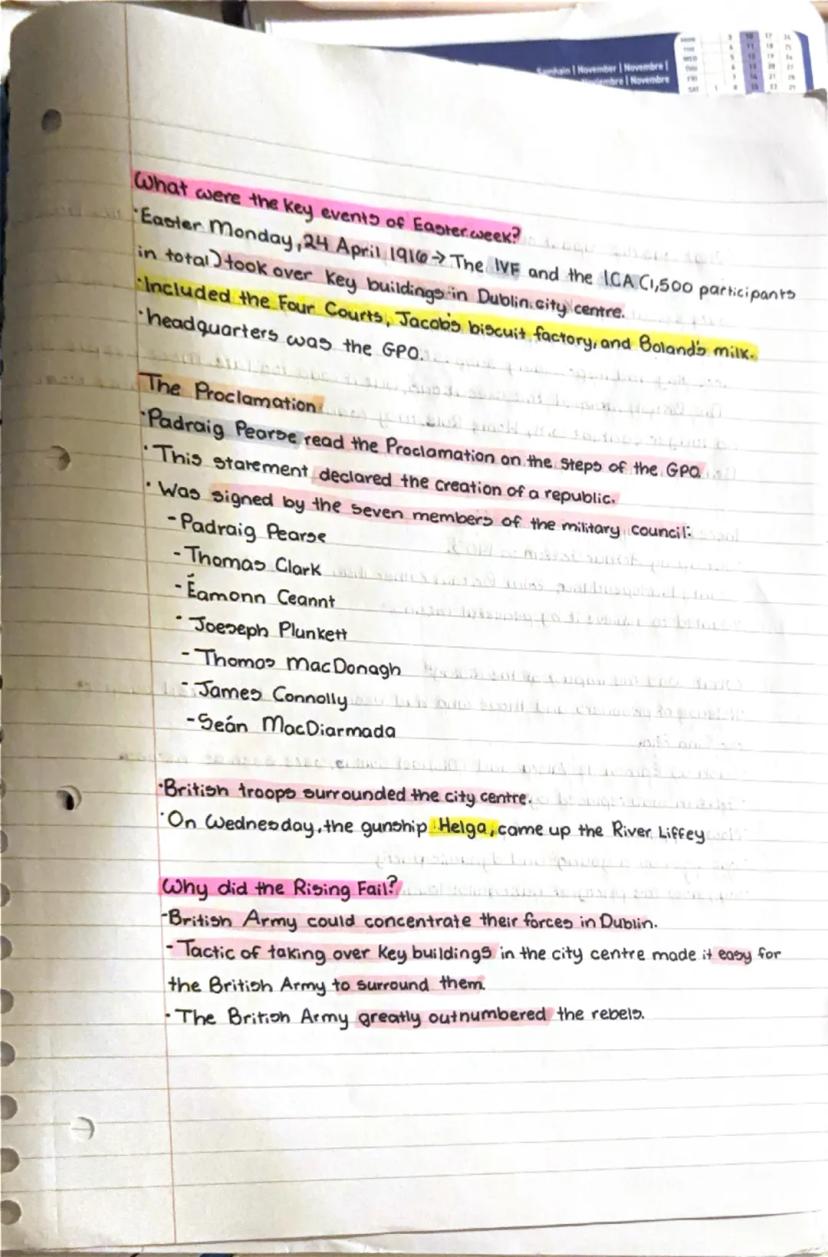 Samhain | November | Novembre |
| Novembre
What were the key events of Easter week?
·Easter Monday, 24 April 1916 → The IVF and the ICA (1,500 participants
in total) took over key buildings in Dublin city centre.
·Included the Four Courts, Jacob's biscuit factory, and Boland's milk.
·headquarters was the GPO.
The Proclamation
·Padraig Pearse read the Proclamation on the steps of the GPO.
·This statement declared the creation of a republic.
·Was signed by the seven members of the military council:
-Padraig Pearse
-Thomas Clark
-Éamonn Ceannt
-Joeseph Plunkett
-Thomas MacDonagh
-James Connolly
-Seán MacDiarmada
·British troops surrounded the city centre.
·On Wednesday, the gunship Helga, came up the River Liffey
Why did the Rising Fail?
-British Army could concentrate their forces in Dublin.
-Tactic of taking over key buildings in the city centre made it easy for
the British Army to surround them.
·The British Army greatly outnumbered the rebels.